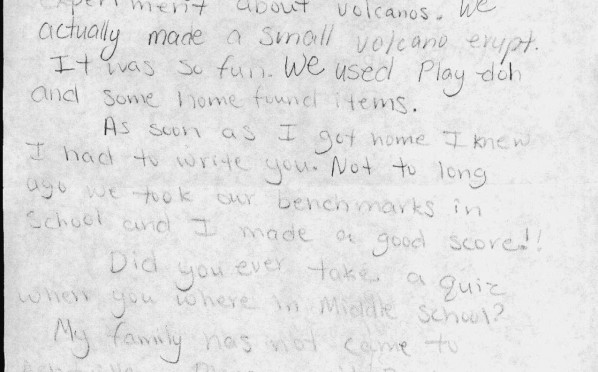 experiment about volcanos. We
actually made a small volcano erupt.
It was so fun. We used Play-doh
and some home found items.
As soon as I got home I knew
I had to write you. Not to long
ago we took our benchmarks in
school and I made a good score!!
Did you ever take a quiz
when you where in Middle school?
My family has not came to